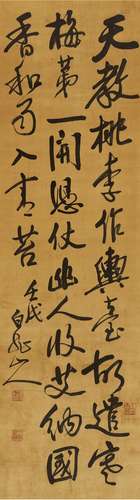 天教桃李作輿臺故遣寒
梅第一開憑仗幽人收艾納國
香和雨入青苔 壬戌 白 山人